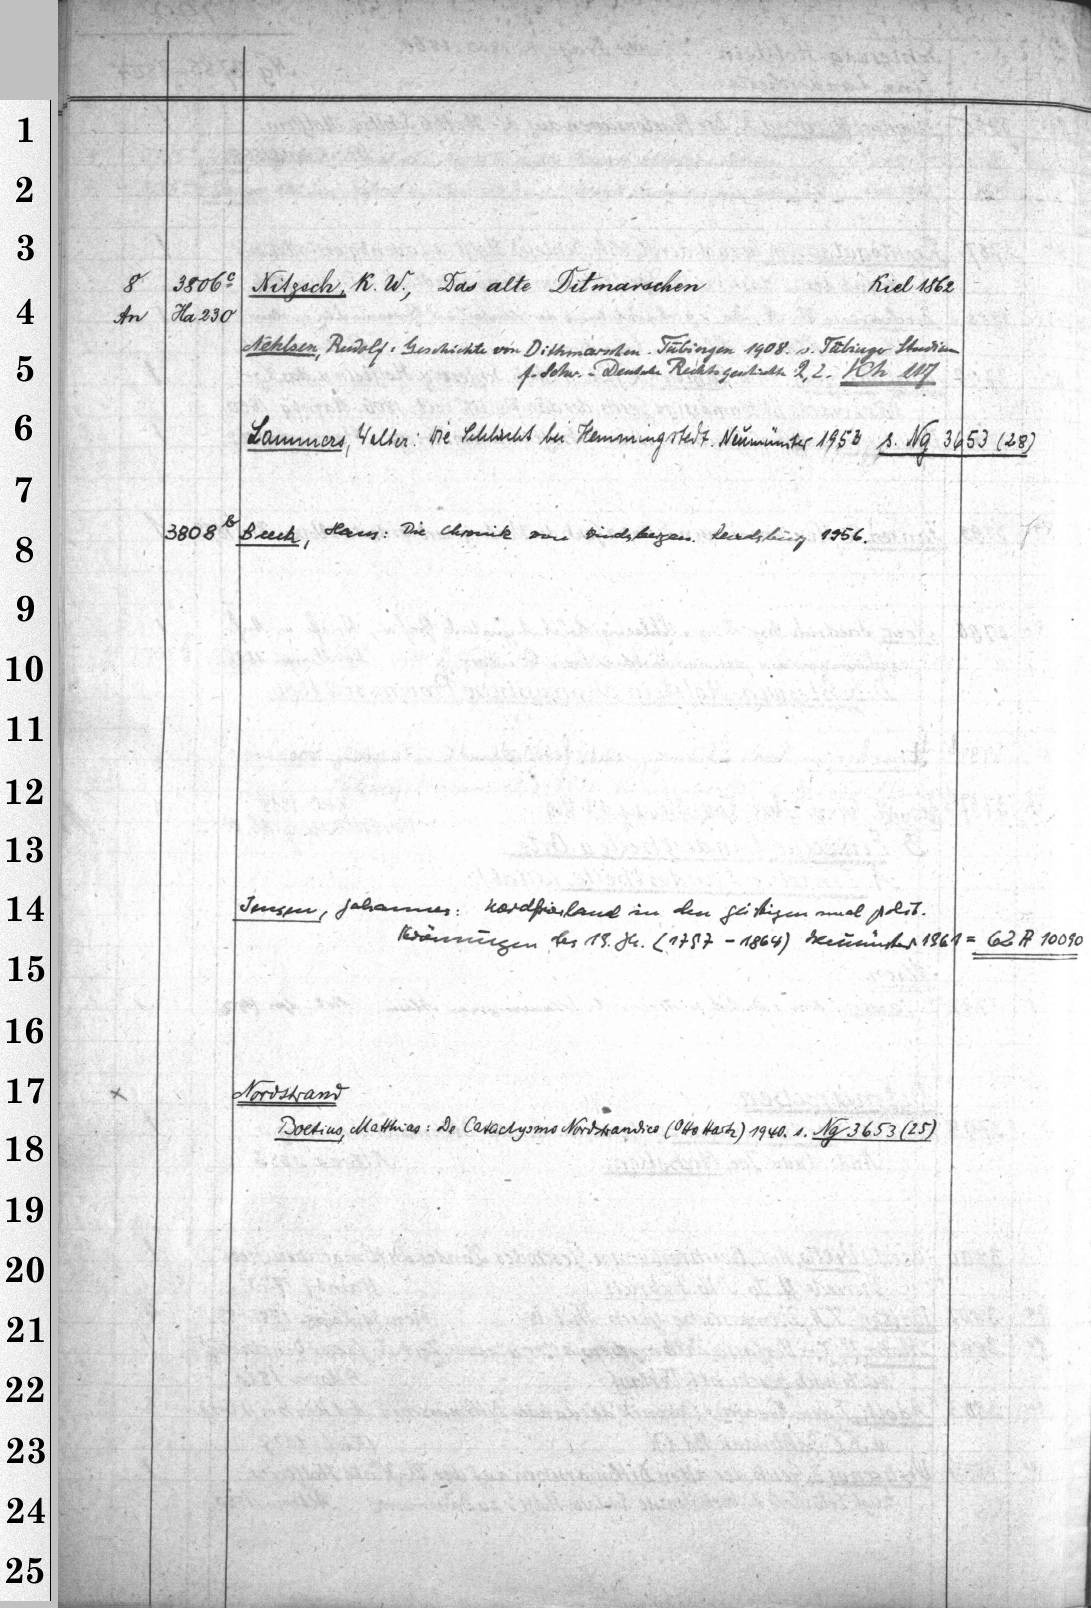 1
2
3
8° 3806c Nitzsch, K. W., Das alte Ditmarschen Kiel 1862
4 An Ha 230
Nehlsen, Rudolf: Geschichte von Dithmarschen. Tübingen 1908. s. Tübinger Studien
5 f. Schw. - Deutsche Rechtsgeschichte 2,2. Kh 117
6 Lammers, Walter: Die Schlacht bei Hemmingstedt. Neumünster 1953 s. Ng 3653 (28)
7
3808b Beeck, Hans: Die Chronik von Rendsburg 1956.
8
9
10
11
12
13
14 Jensen, Johannes: Nordfriesland in den geistigen und polit.
Strömungen des 19. Jh. (1797 - 1864) Neumünster 1961 = 62 A 10090
15
16
17 × Nordstrand
Boetius, Matthias: De Cataclysmo Nordstrandico (Otto Hartz) 1940. s. Ng 3653 (25)
18
19
20
21
22
23
24
25